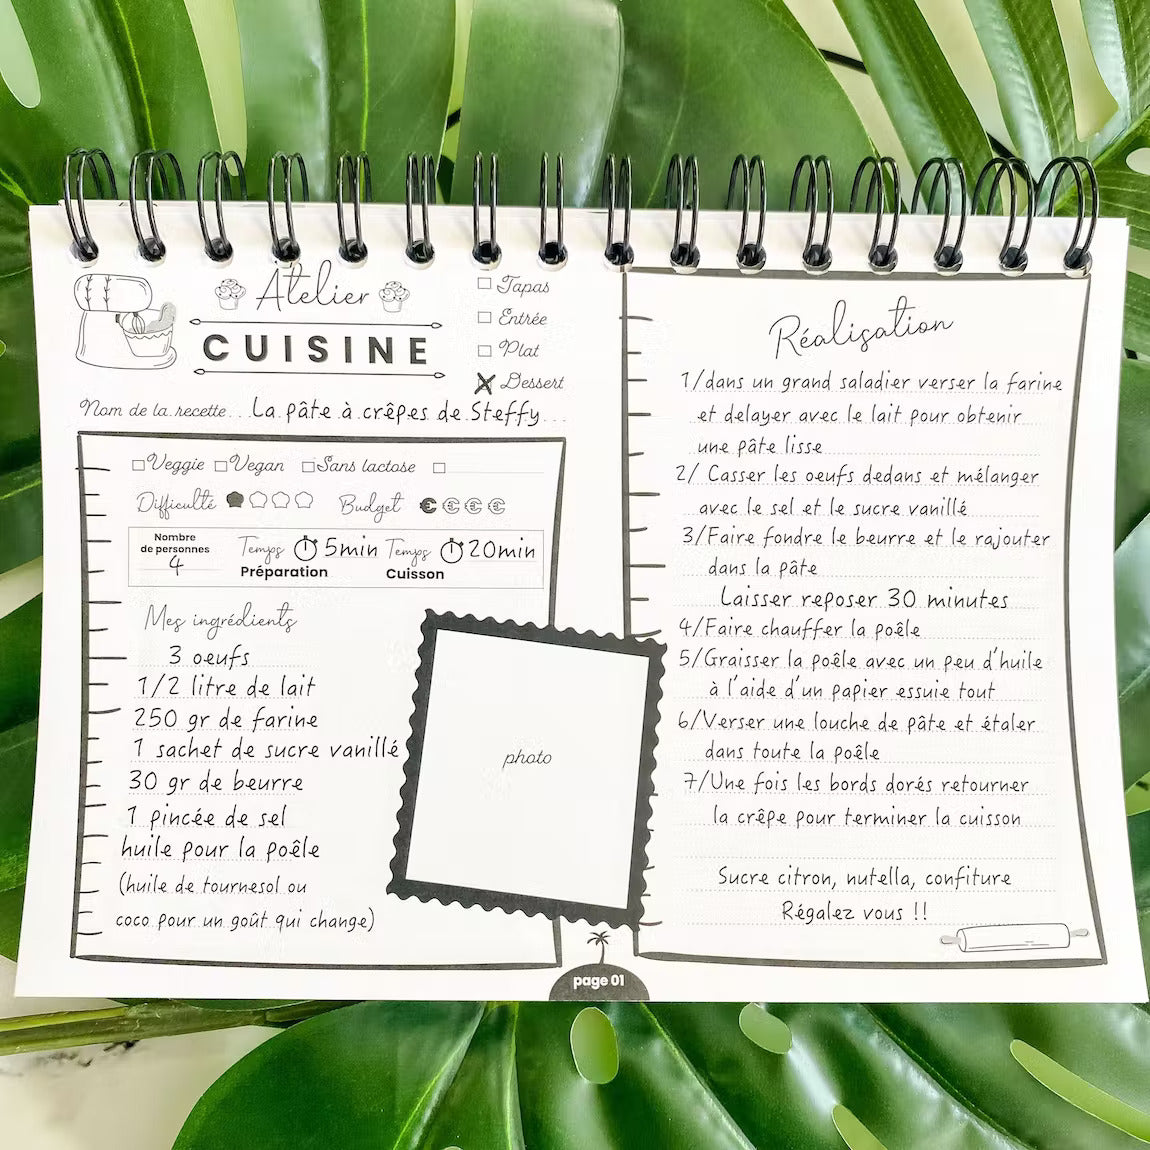 Atelier
CUISINE
Tapas
Entrée
Plat
Dessert
Nom de la recette... La pâte à crêpes de Steffy
Veggie Vegan Sans lactose
Difficulté Budget € € € €
Nombre
de personnes
4
Temps 5min
Préparation
Temps 20min
Cuisson
Mes ingrédients
3 oeufs
1/2 litre de lait
250 gr de farine
1 sachet de sucre vanillé
30 gr de beurre
1 pincée de sel
huile pour la poêle
(huile de tournesol ou
coco pour un goût qui change)
photo
Réalisation
1/dans un grand saladier verser la farine
et delayer avec le lait pour obtenir
une pâte lisse
2/ Casser les oeufs dedans et mélanger
avec le sel et le sucre vanillé
3/Faire fondre le beurre et le rajouter
dans la pâte
Laisser reposer 30 minutes
4/Faire chauffer la poêle
5/Graisser la poêle avec un peu d'huile
à l'aide d'un papier essuie tout
6/Verser une louche de pâte et étaler
dans toute la poêle
7/Une fois les bords dorés retourner
la crêpe pour terminer la cuisson
Sucre citron, nutella, confiture
Régalez vous !!
page 01